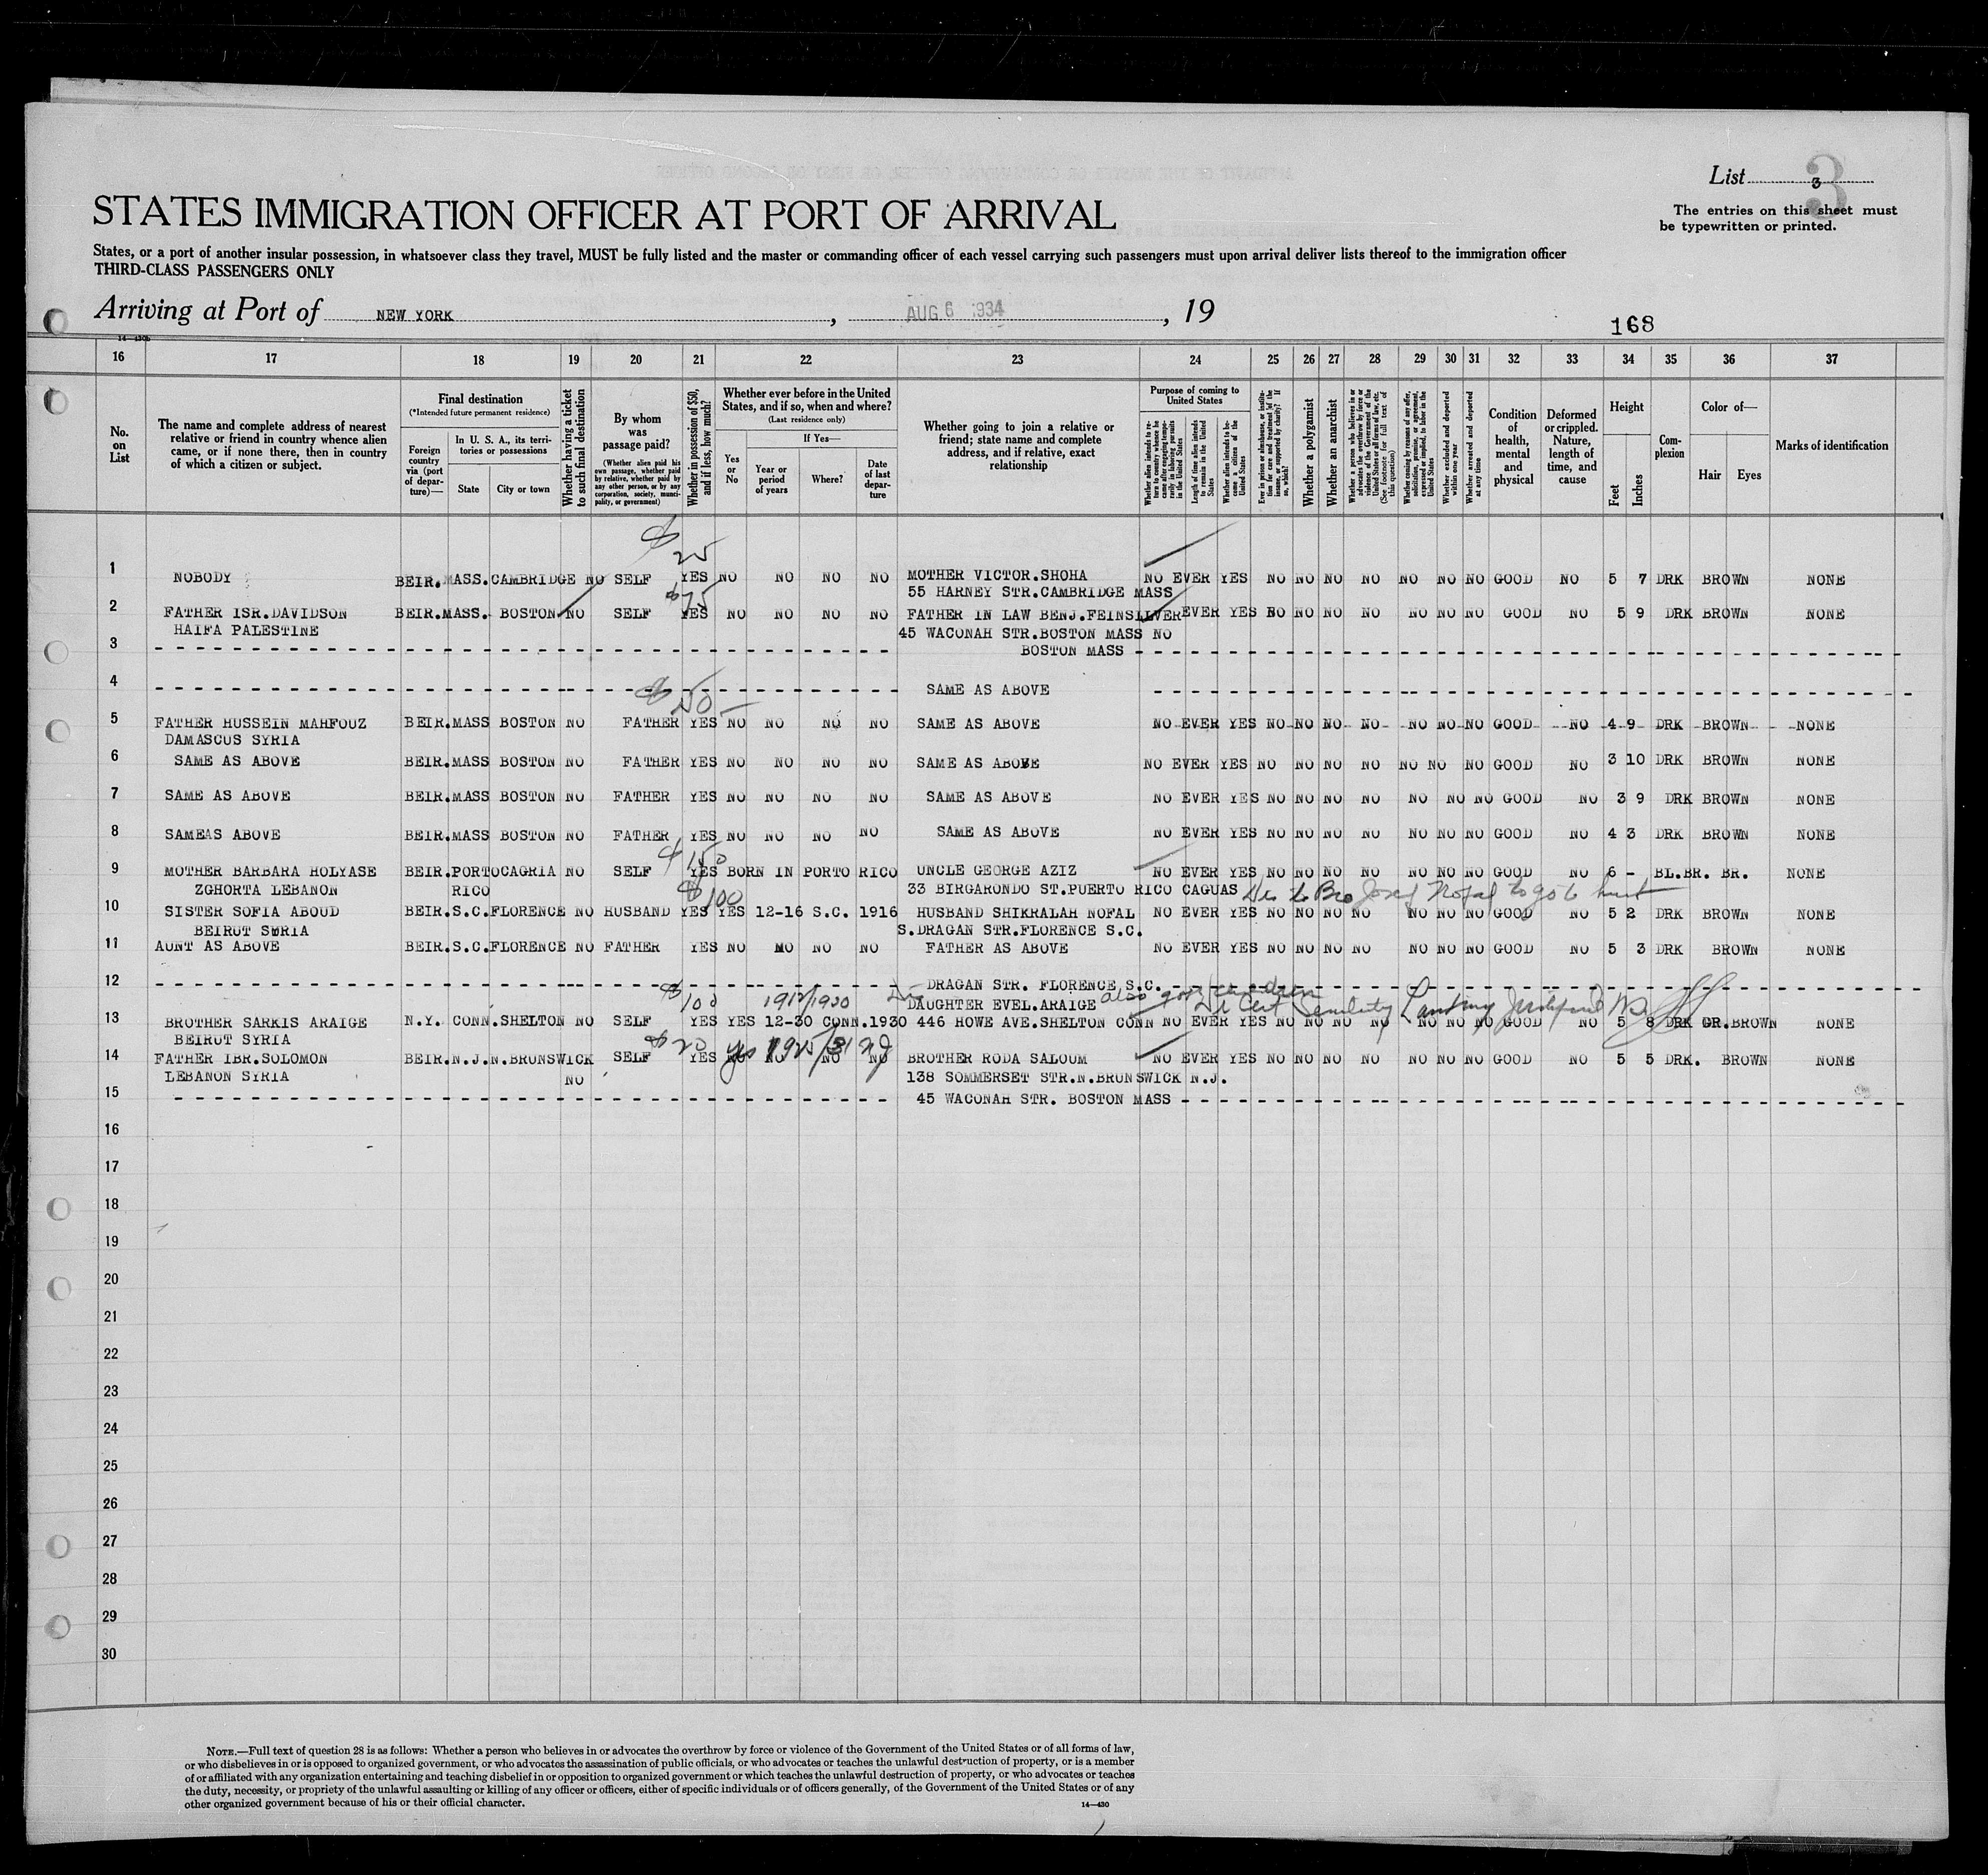 List 3
3
The entries on this sheet must
be typewritten or printed.
STATES IMMIGRATION OFFICER AT PORT OF ARRIVAL
States, or a port of another insular possession, in whatsoever class they travel, MUST be fully listed and the master or commanding officer of each vessel carrying such passengers must upon arrival deliver lists thereof to the immigration officer
THIRD-CLASS PASSENGERS ONLY
Arriving at Port of NEW YORK, AUG 6 1934, 19
168
14—430b
16 17 18 19 20 21 22 23 24 25 26 27 28 29 30 31 32 33 34 35 36 37
No. on List
The name and complete address of nearest relative or friend in country whence alien came, or if none there, then in country of which a citizen or subject.
Final destination
(*Intended future permanent residence)
Foreign country via (port of departure)—
In U. S. A., its territories or possessions
State
City or town
Whether having a ticket to such final destination
By whom was passage paid?
(Whether alien paid his own passage, whether paid by relative, whether paid by any other person, or by any corporation, society, municipality, or government)
Whether in possession of $50, and if less, how much?
Whether ever before in the United States, and if so, when and where?
(Last residence only)
Yes or No
If Yes—
Year or period of years
Where?
Date of last departure
Whether going to join a relative or friend; state name and complete address, and if relative, exact relationship
Purpose of coming to United States
Whether alien intends to return to country whence he came after engaging temporarily in laboring pursuits in the United States
Length of time alien intends to remain in the United States
Whether alien intends to become a citizen of the United States
Ever in prison or almshouse, or institution for care and treatment of the insane, or supported by charity? If so, which?
Whether a polygamist
Whether an anarchist
Whether a person who believes in or advocates the overthrow by force or violence of the Government of the United States or all forms of law, etc. (See footnote for full text of this question)
Whether coming by reasons of any offer, solicitation, promise, or agreement, expressed or implied, to labor in the United States
Whether excluded and deported within one year
Whether arrested and deported at any time
Condition of health, mental and physical
Deformed or crippled. Nature, length of time, and cause
Height
Feet
Inches
Complexion
Color of—
Hair
Eyes
Marks of identification
$ 25
1 NOBODY BEIR. MASS. CAMBRIDGE NO SELF YES NO NO NO NO MOTHER VICTOR.SHOHA NO EVER YES NO NO NO NO NO NO NO GOOD NO 5 7 DRK BROWN NONE
55 HARNEY STR.CAMBRIDGE MASS
$75
2 FATHER ISR.DAVIDSON BEIR.MASS. BOSTON NO SELF YES NO NO NO NO FATHER IN LAW BENJ.FEINSILVER EVER YES NO NO NO NO NO NO NO GOOD NO 5 9 DRK BROWN NONE
HAIFA PALESTINE 45 WACONAH STR.BOSTON MASS NO
3 BOSTON MASS
4 SAME AS ABOVE
$50—
5 FATHER HUSSEIN MAHFOUZ BEIR.MASS BOSTON NO FATHER YES NO NO NO NO SAME AS ABOVE NO EVER YES NO NO NO NO NO NO NO GOOD NO 4 9 DRK BROWN NONE
DAMASCUS SYRIA
6 SAME AS ABOVE BEIR.MASS BOSTON NO FATHER YES NO NO NO NO SAME AS ABOVE NO EVER YES NO NO NO NO NO NO NO GOOD NO 3 10 DRK BROWN NONE
7 SAME AS ABOVE BEIR.MASS BOSTON NO FATHER YES NO NO NO NO SAME AS ABOVE NO EVER YES NO NO NO NO NO NO NO GOOD NO 3 9 DRK BROWN NONE
8 SAMEAS ABOVE BEIR.MASS BOSTON NO FATHER YES NO NO NO NO SAME AS ABOVE NO EVER YES NO NO NO NO NO NO NO GOOD NO 4 3 DRK BROWN NONE
$150
9 MOTHER BARBARA HOLYASE BEIR.PORTOCAGRIA NO SELF YES BORN IN PORTO RICO UNCLE GEORGE AZIZ NO EVER YES NO NO NO NO NO NO NO GOOD NO 6 - BL.BR. BR. NONE
ZGHORTA LEBANON RICO $100 33 BIRGARONDO ST.PUERTO RICO CAGUAS to Bro Nofal to go to
10 SISTER SOFIA ABOUD BEIR.S.C.FLORENCE NO HUSBAND YES YES 12-16 S.C. 1916 HUSBAND SHIKRALAH NOFAL NO EVER YES NO NO NO NO NO NO NO GOOD NO 5 2 DRK BROWN NONE
BEIRUT SYRIA S.DRAGAN STR.FLORENCE S.C.
11 AUNT AS ABOVE BEIR.S.C.FLORENCE NO FATHER YES NO NO NO NO FATHER AS ABOVE NO EVER YES NO NO NO NO NO NO NO GOOD NO 5 3 DRK BROWN NONE
12 DRAGAN STR. FLORENCE S.C.
$100 1912/1930 DAUGHTER EVEL.ARAIGE also
13 BROTHER SARKIS ARAIGE N.Y. CONN.SHELTON NO SELF YES YES 12-30 CONN.1930 446 HOWE AVE.SHELTON CONN NO EVER YES NO NO NO NO NO NO NO GOOD NO 5 8 DRK GR.BROWN NONE
BEIRUT SYRIA $20 yes 1925/31 NJ
14 FATHER IBR.SOLOMON BEIR.N.J.N.BRUNSWICK SELF YES NO NO NO NO BROTHER RODA SALOUM NO EVER YES NO NO NO NO NO NO NO GOOD NO 5 5 DRK. BROWN NONE
LEBANON SYRIA NO 138 SOMMERSET STR.N.BRUNSWICK N.J.
15 45 WACONAH STR. BOSTON MASS
16
17
18
19
20
21
22
23
24
25
26
27
28
29
30
NOTE.—Full text of question 28 is as follows: Whether a person who believes in or advocates the overthrow by force or violence of the Government of the United States or of all forms of law,
or who disbelieves in or is opposed to organized government, or who advocates the assassination of public officials, or who advocates or teaches the unlawful destruction of property, or is a member
of or affiliated with any organization entertaining and teaching disbelief in or opposition to organized government or which teaches the unlawful destruction of property, or who advocates or teaches
the duty, necessity, or propriety of the unlawful assaulting or killing of any officer or officers, either of specific individuals or of officers generally, of the Government of the United States or of any
other organized government because of his or their official character.
14—430